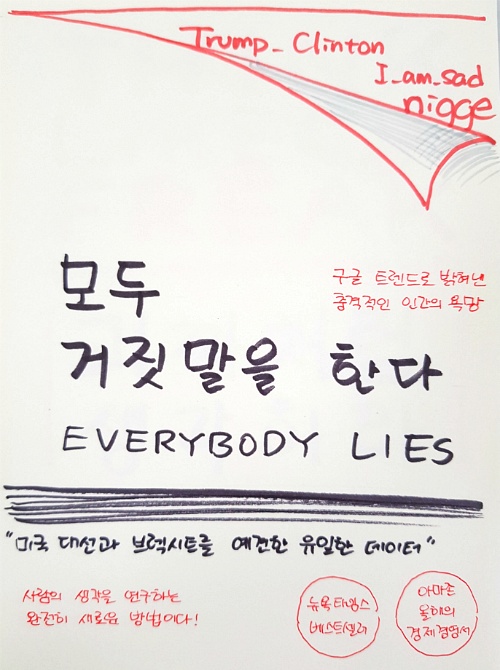 Trump_Clinton
I_am_sad
nigge
모두
거짓말을 한다
EVERYBODY LIES
구글 트렌드로 밝혀낸
충격적인 인간의 욕망
"미국 대선과 브렉시트를 예견한 유일한 데이터"
사람의 생각을 연구하는
완전히 새로운 방법이다!
뉴욕타임스
베스트셀러
아마존
올해의
경제경영서